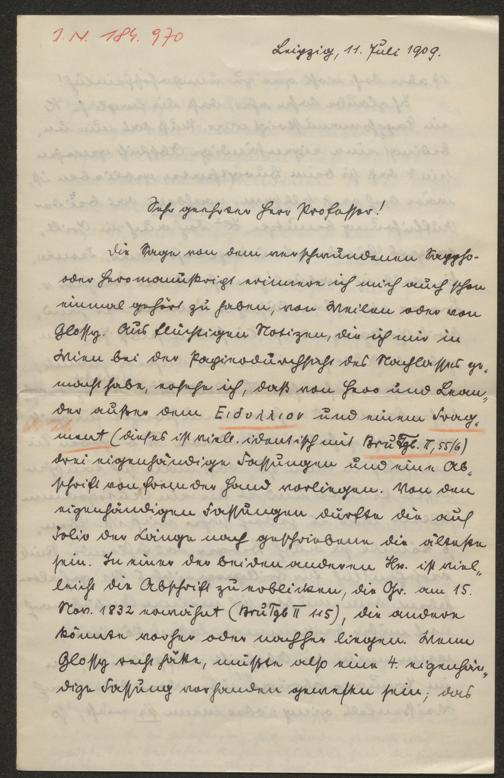 I.N. 184.970
Leipzig, 11. Juli 1909.
Sehr geehrter Herr Professor!
Die Sage von dem verschwundenen Sappho-
oder Heromanuskript erinnere ich mich auch schon
einmal gehört zu haben, von Weilen oder von
Glossy. Aus flüchtigen Notizen, die ich mir in
Wien bei der Papierdurchsicht des Nachlasses ge-
macht habe, ersehe ich, daß von Hero und Lean-
der außer dem Ειδυλλιον und einem Frag-
ment (dieses ist viell. identisch mit BruTgb. II, 55/6)
drei eigenhändige Fassungen und eine Ab-
schrift von fremder Hand vorliegen. Von den
eigenhändigen Fassungen dürfte die auf
Folio der Länge nach geschriebene die älteste
sein. In einer der beiden anderen Hs. ist viel-
leicht die Abschrift zu erblicken, die Gr. am 15.
Nov. 1832 erwähnt (BruTgb II 115), die andere
könnte vorher oder nachher liegen. Wenn
Glossy recht hätte, müßte also eine 4. eigenhän-
dige Fassung vorhanden gewesen sein; das